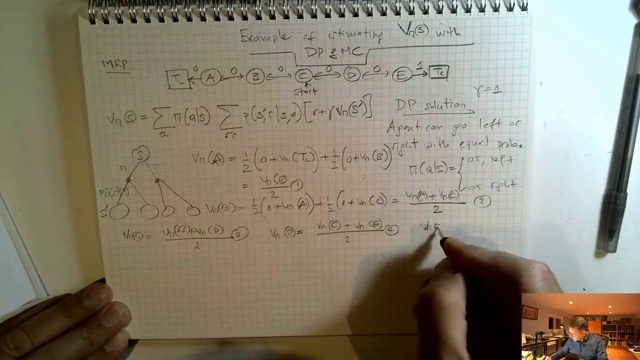 Example of estimating Vπ(s) with
DP & MC
MRP
TL ← 0 A ↔ 0 B ↔ 0 C ↔ 0 D ↔ 0 E → 1 TR
start
Vπ(s) = Σa π(a|s) Σs'r p(s',r|s,a) [r + γ Vπ(s')]
DP solution γ=1
Agent can go left or
right with equal prob.
π(a|s) = { 0.5, left
0.5 right
S
π
s'
Vπ(A) = 1/2 (0 + Vπ(TL)) + 1/2 (0 + Vπ(B))
= Vπ(B)/2 ①
Vπ(B) = 1/2 (0 + Vπ(A)) + 1/2 (0 + Vπ(C)) = Vπ(A) + Vπ(C) / 2 ②
Vπ(C) = Vπ(B) + Vπ(D) / 2 ③ Vπ(D) = Vπ(C) + Vπ(E) / 2 ④